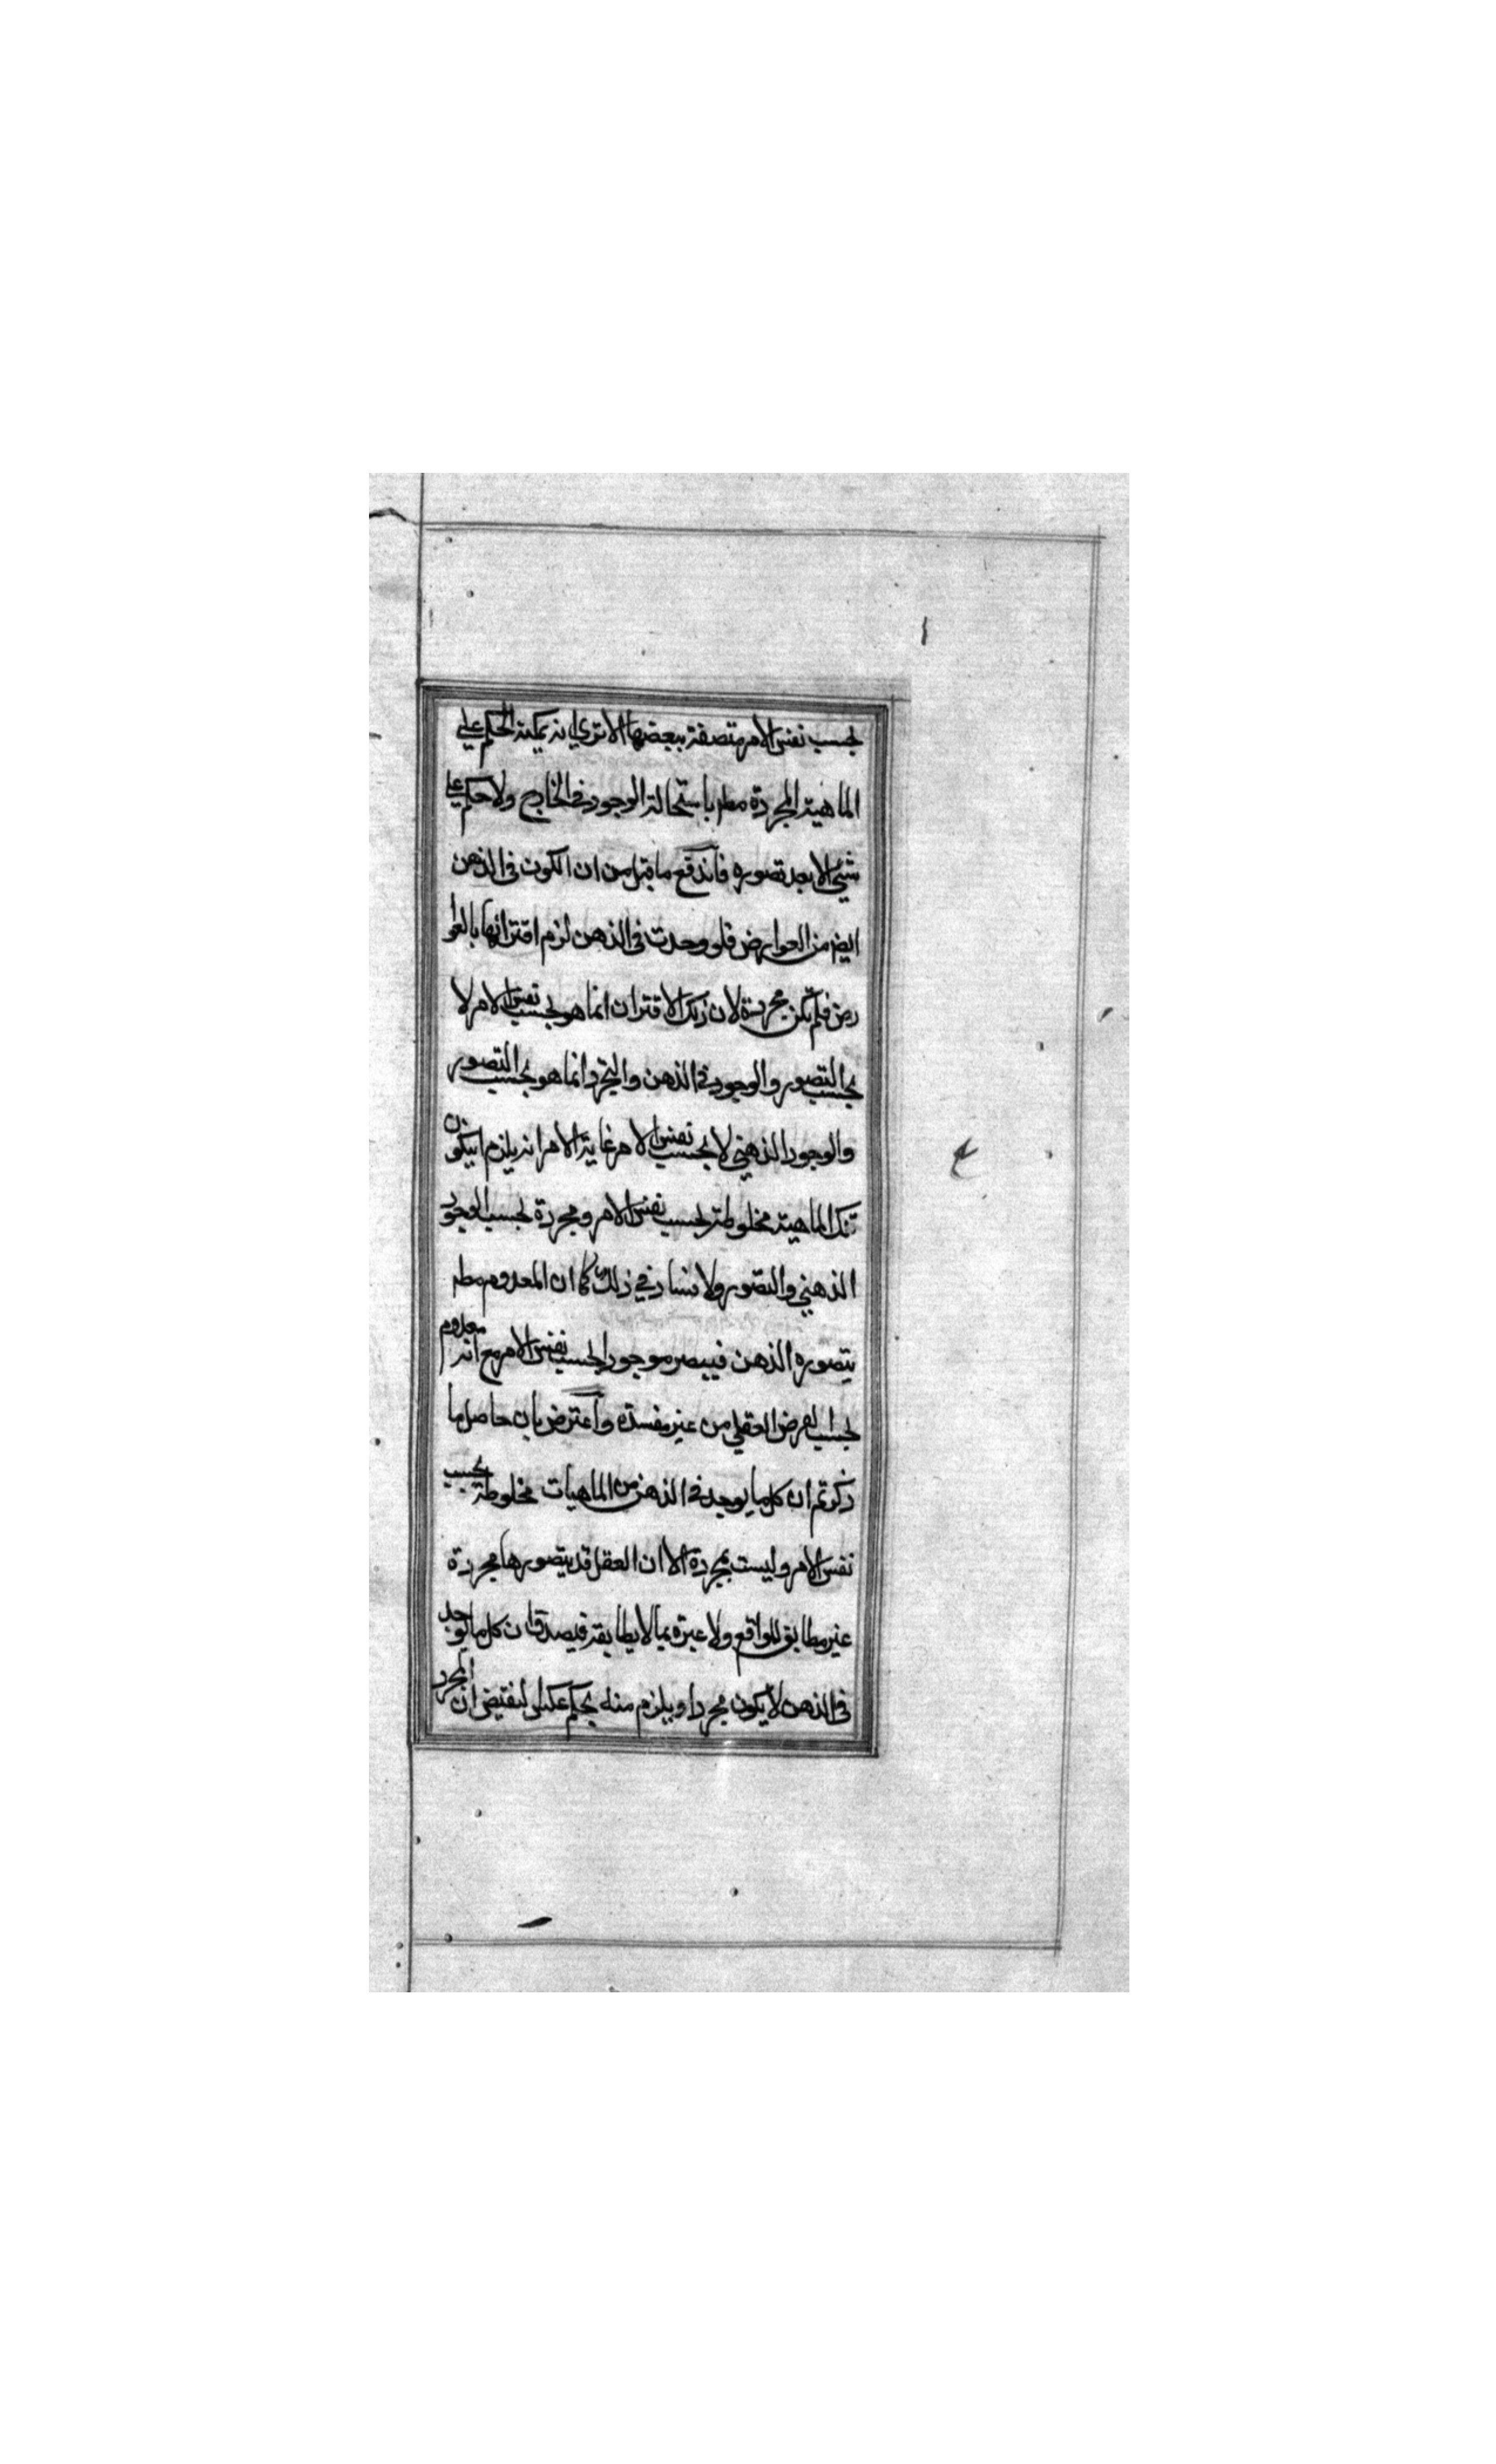 بحسب نفس الامر متصفة ببعضها الا تري انه يمكنه الحكم علي
الماهية المجردة مطر باستحالة الوجود في الخارج ولا حكم علي
شئ الا بعد تصوره فاندفع ما قيل من ان الكون في الذهن
ايض من العوارض فلو وجدت في الذهن لزم اقترانها بالعوا
رض فلم تكن مجردة لان ذلك الاقتران انما هو بحسب نفس الامر لا
بحسب التصور والوجود في الذهن والتجرد انما هو بحسب التصور
والوجود الذهني لا بحسب نفس الامر غاية الامر انه يلزم ان يكون
تلك الماهية مخلوطة بحسب نفس الامر ومجردة بحسب الوجود
الذهني والتصور ولا فساد في ذلك كما ان المعدوم مطر
يتصوره الذهن فيصير موجودا بحسب نفس الامر مع انه معدوم
بحسب الفرض العقلي من غير مفسدة واعترض بان حاصل ما
ذكرتم ان كل ما يوجد في الذهن من الماهيات مخلوطة بحسب
نفس الامر وليست بمجردة الا ان العقل قد يتصورها مجردة
غير مطابق للواقع ولا عبرة بما لا يطابقه فيصدق ان كل ما يوجد
في الذهن لا يكون مجردا ويلزم منه بحكم عكس النقيض ان المجرد